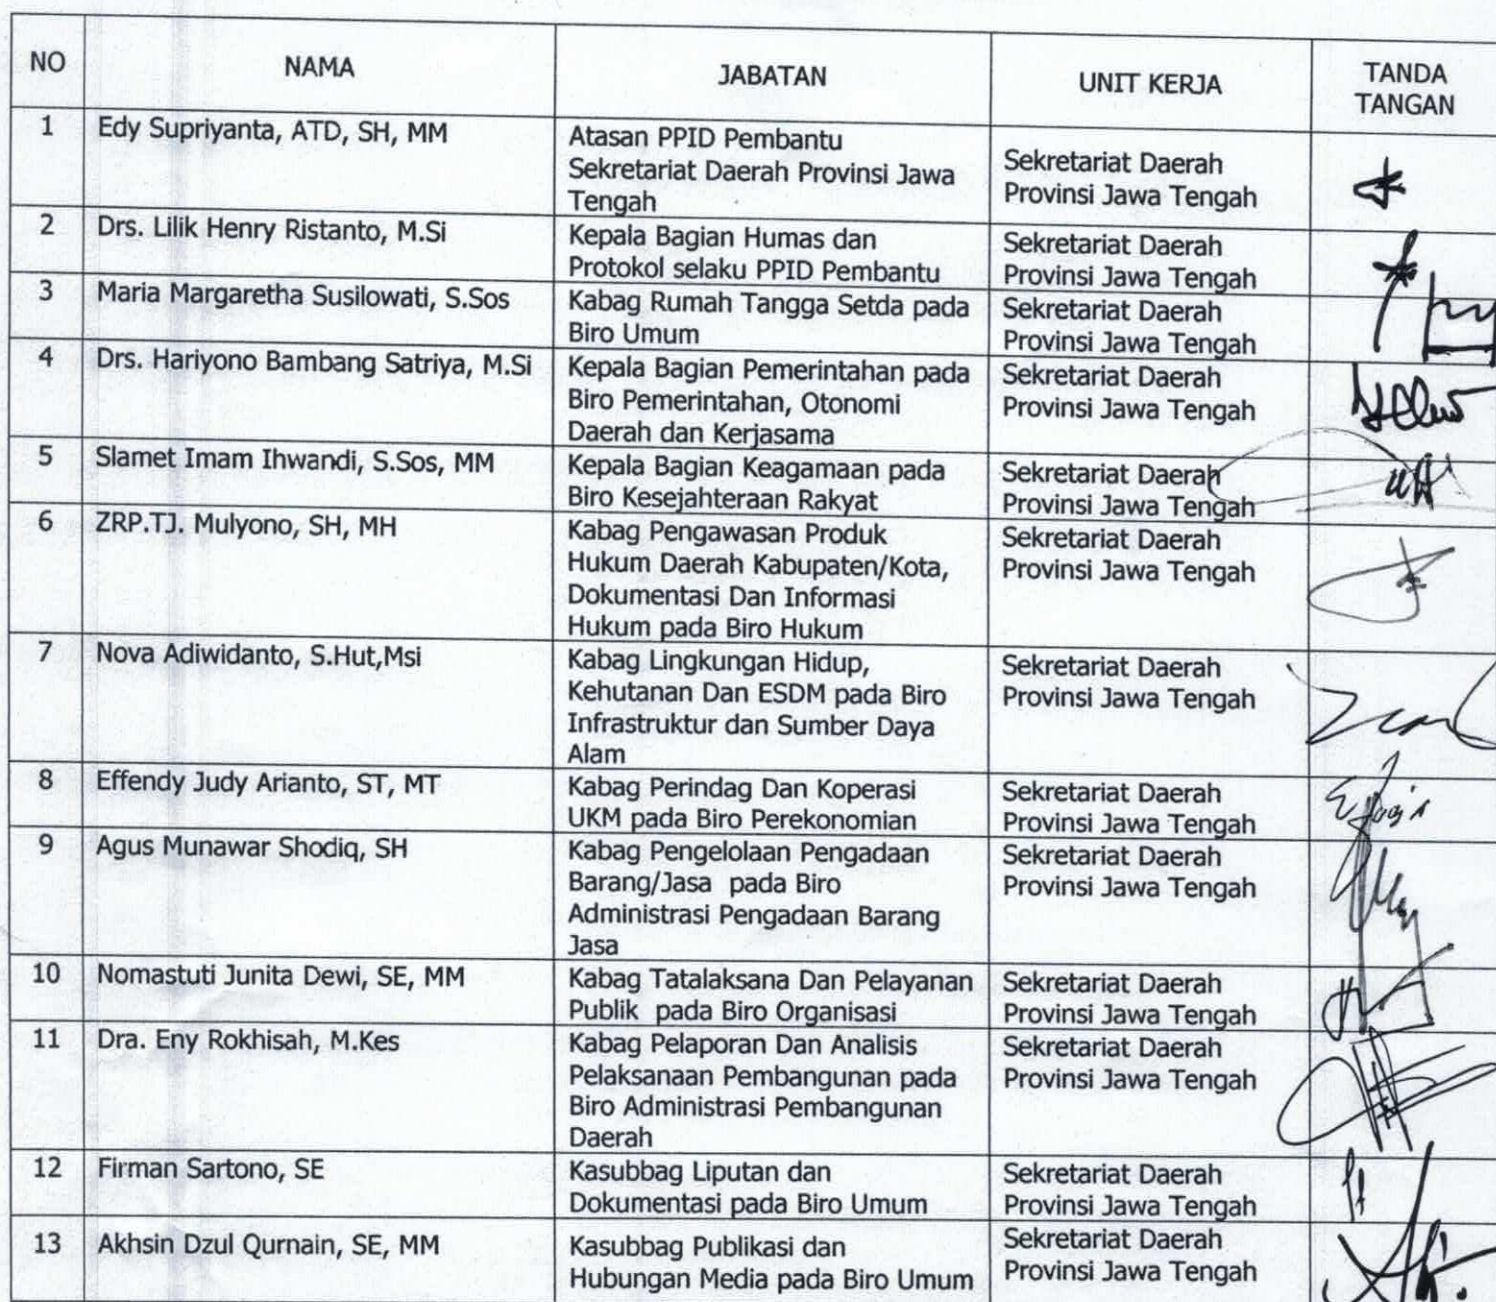 NO NAMA JABATAN UNIT KERJA TANDA
TANGAN
1 Edy Supriyanta, ATD, SH, MM Atasan PPID Pembantu
Sekretariat Daerah Provinsi Jawa
Tengah
Sekretariat Daerah
Provinsi Jawa Tengah
2 Drs. Lilik Henry Ristanto, M.Si Kepala Bagian Humas dan
Protokol selaku PPID Pembantu
Sekretariat Daerah
Provinsi Jawa Tengah
3 Maria Margaretha Susilowati, S.Sos Kabag Rumah Tangga Setda pada
Biro Umum
Sekretariat Daerah
Provinsi Jawa Tengah
4 Drs. Hariyono Bambang Satriya, M.Si Kepala Bagian Pemerintahan pada
Biro Pemerintahan, Otonomi
Daerah dan Kerjasama
Sekretariat Daerah
Provinsi Jawa Tengah
5 Slamet Imam Ihwandi, S.Sos, MM Kepala Bagian Keagamaan pada
Biro Kesejahteraan Rakyat
Sekretariat Daerah
Provinsi Jawa Tengah
6 ZRP.TJ. Mulyono, SH, MH Kabag Pengawasan Produk
Hukum Daerah Kabupaten/Kota,
Dokumentasi Dan Informasi
Hukum pada Biro Hukum
Sekretariat Daerah
Provinsi Jawa Tengah
7 Nova Adiwidanto, S.Hut,Msi Kabag Lingkungan Hidup,
Kehutanan Dan ESDM pada Biro
Infrastruktur dan Sumber Daya
Alam
Sekretariat Daerah
Provinsi Jawa Tengah
8 Effendy Judy Arianto, ST, MT Kabag Perindag Dan Koperasi
UKM pada Biro Perekonomian
Sekretariat Daerah
Provinsi Jawa Tengah
9 Agus Munawar Shodiq, SH Kabag Pengelolaan Pengadaan
Barang/Jasa pada Biro
Administrasi Pengadaan Barang
Jasa
Sekretariat Daerah
Provinsi Jawa Tengah
10 Nomastuti Junita Dewi, SE, MM Kabag Tatalaksana Dan Pelayanan
Publik pada Biro Organisasi
Sekretariat Daerah
Provinsi Jawa Tengah
11 Dra. Eny Rokhisah, M.Kes Kabag Pelaporan Dan Analisis
Pelaksanaan Pembangunan pada
Biro Administrasi Pembangunan
Daerah
Sekretariat Daerah
Provinsi Jawa Tengah
12 Firman Sartono, SE Kasubbag Liputan dan
Dokumentasi pada Biro Umum
Sekretariat Daerah
Provinsi Jawa Tengah
13 Akhsin Dzul Qurnain, SE, MM Kasubbag Publikasi dan
Hubungan Media pada Biro Umum
Sekretariat Daerah
Provinsi Jawa Tengah